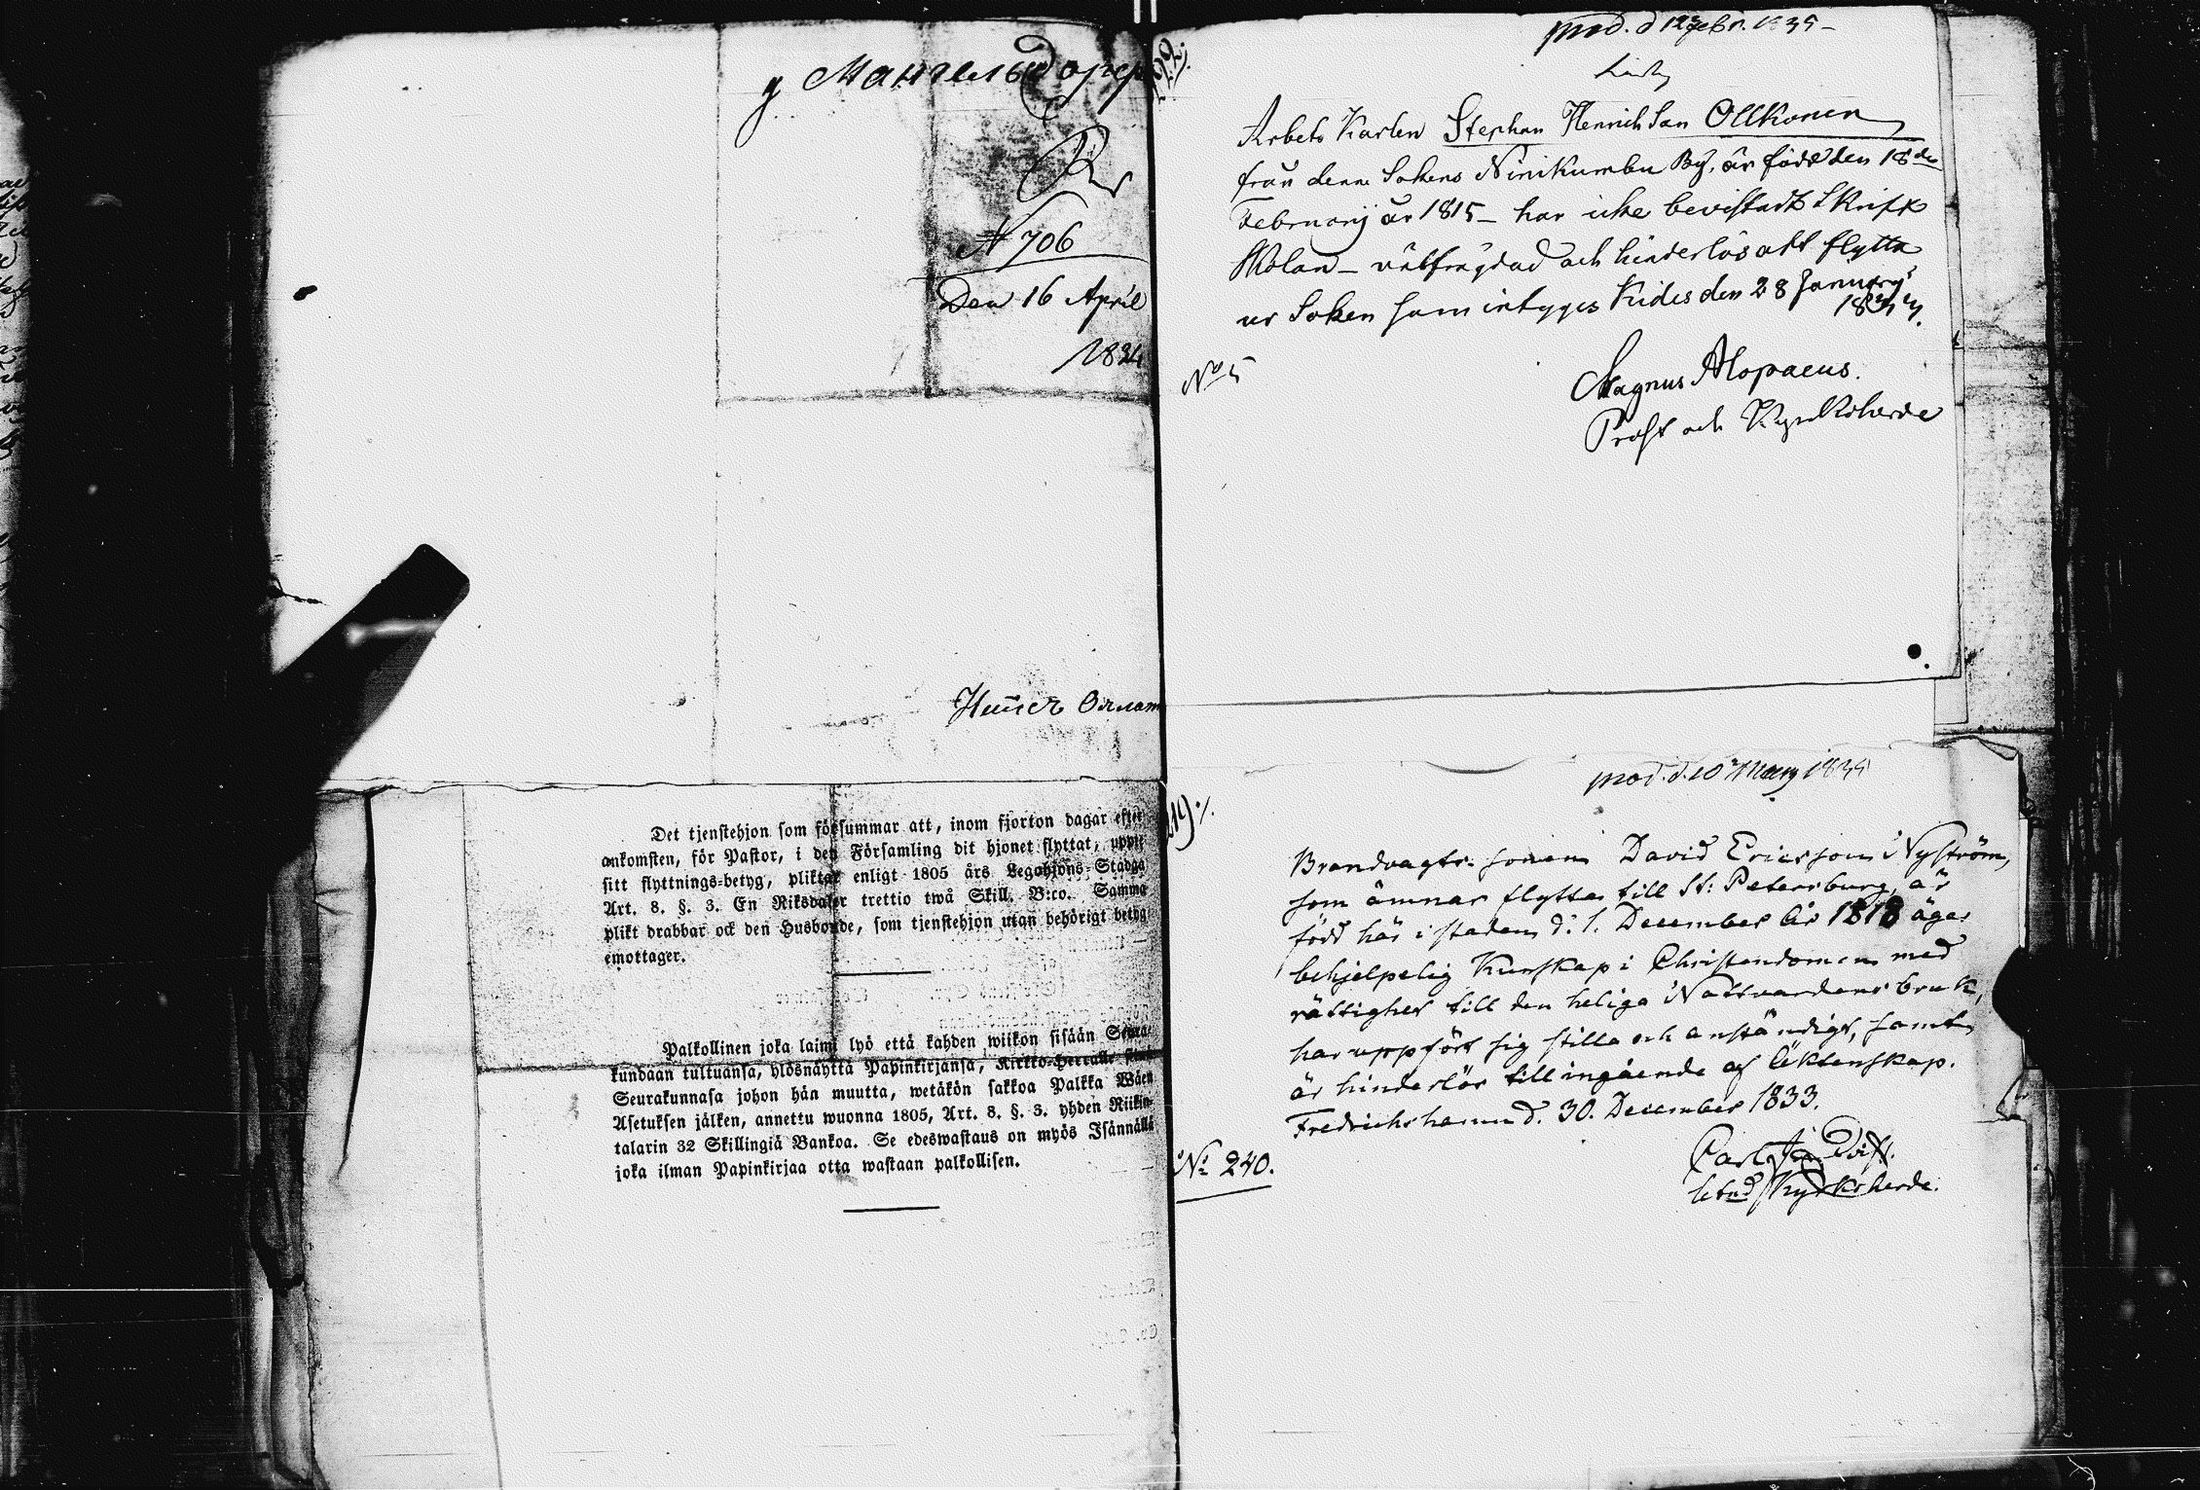 у Мангельсдорф
№ 706
Den 16 April
1834
Det tjenstehjon som försummar att, inom fjorton dagar efter
ankomsten, för Pastor, i den Församling dit hjonet flyttat, uppte
sitt flyttnings-betyg, pliktar enligt 1805 års Legohjons-Stadga
Art. 8. §. 3. En Riksdaler trettio twå Skill. B:co. Samma
plikt drabbar ock den Husbonde, som tjenstehjon utan behörigt betyg
emottager.
Palkollinen joka laimi lyö että kahden wiikon sisään Seura-
kundaan tultuansa, ylösnäyttä Papinkirjansa, Kirkko-Herralle siinä
Seurakunnasa johon hän muutta, wetäkön sakkoa Palkka Wäen
Asetuksen jälken, annettu wuonna 1805, Art. 8. §. 3. yhden Riikin-
talarin 32 Skillingiä Bankoa. Se edeswastaus on myös Isännällä
joka ilman Papinkirjaa otta wastaan palkollisen.
122.
prod. d 12 Febr. 1835
Arbets Karlen Stephan Henrichsson Ollkonen
från denne Sokens Niinikumbu By, är född den 18de
Februarij år 1815 – har icke bevistadt Skrift
Skolan – välfrägdad och hinderlös att flytta
ur Soken som intygges Kides den 28 Januarij
Magnus Alopaeus.
Prost och Kyrkoherde
No 5
prod. d. 10 Mars 1835
219.
Brandvagts sonen David Ericsson Nyström,
som ämnar flytta till St: Petersburg, är
född här i staden d: 1. December år 1818 äger
behjelpelig Kunskap i Christendomen med
rättighet till den heliga Nattvardens bruk,
har uppfört sig stilla och anständigt, samt
är hinderlös till ingående af Äktenskap.
Fredrichshamn d. 30. December 1833.
Kyrkoherde.
No 240.